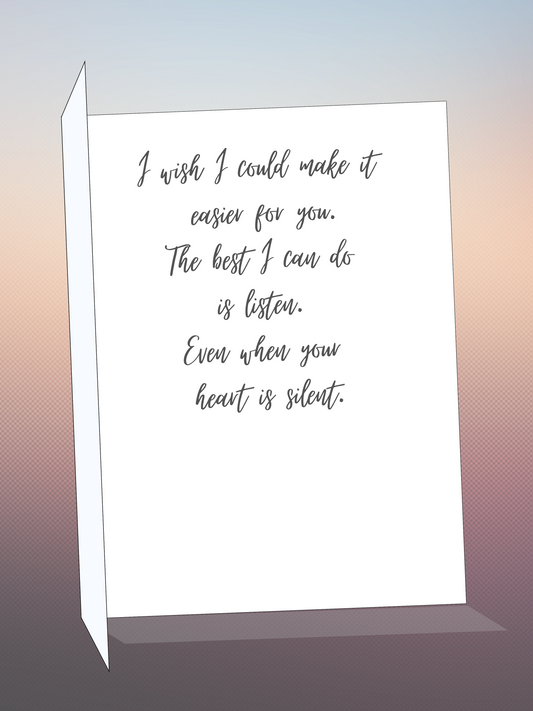 I wish I could make it
easier for you.
The best I can do
is listen.
Even when your
heart is silent.